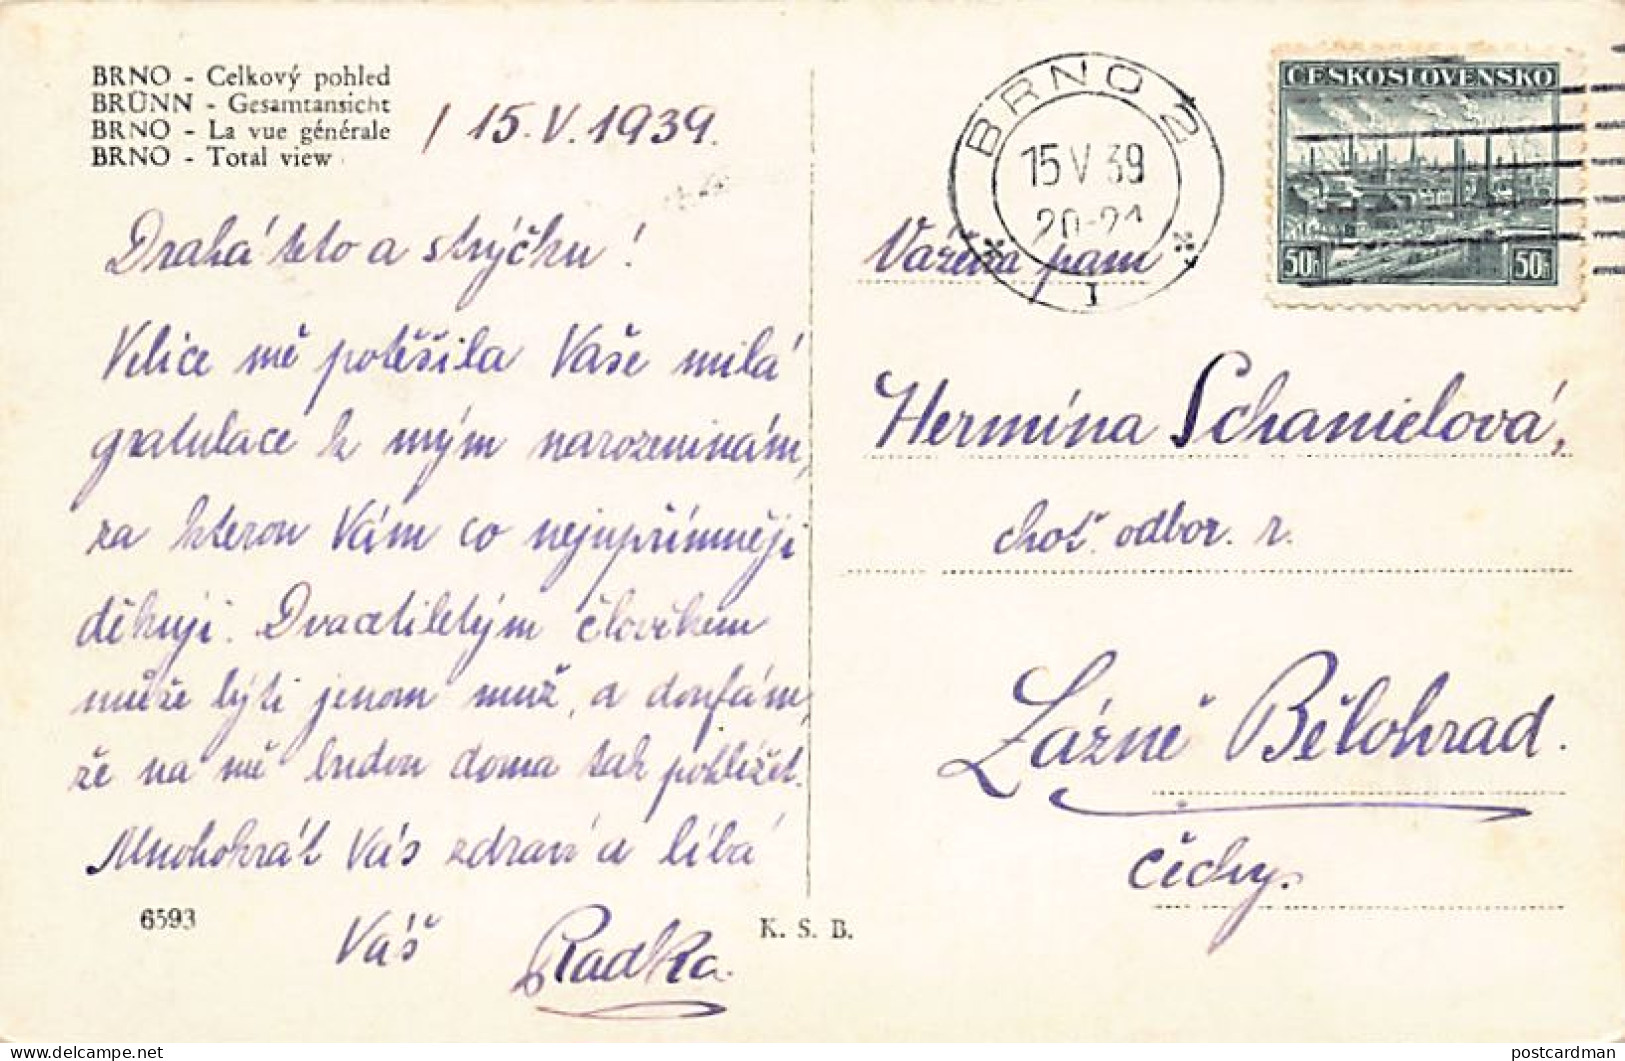 BRNO - Celkový pohled
BRÜNN - Gesamtansicht
BRNO - La vue générale
BRNO - Total view
15.V.1939.
Drahá teto a strýčku!
Velice mě potěšila Vaše milá
gratulace k mým narozeninám,
za kterou Vám co nejupřímněji
děkuji. Dvacetiletým člověkem
může býti jenom muž, a doufám,
že na mě budou doma tak pohlížet.
Mnohokrát Vás zdraví a líbá
Váš Radka.
6593
K. S. B.
BRNO 2
15 V 39
20-21
1
ČESKOSLOVENSKO
50h 50h
Vážená paní
Hermína Schanielová,
choť. odbor. r.
Lázně Bělohrad.
Čechy.
delcampe.net
postcardman